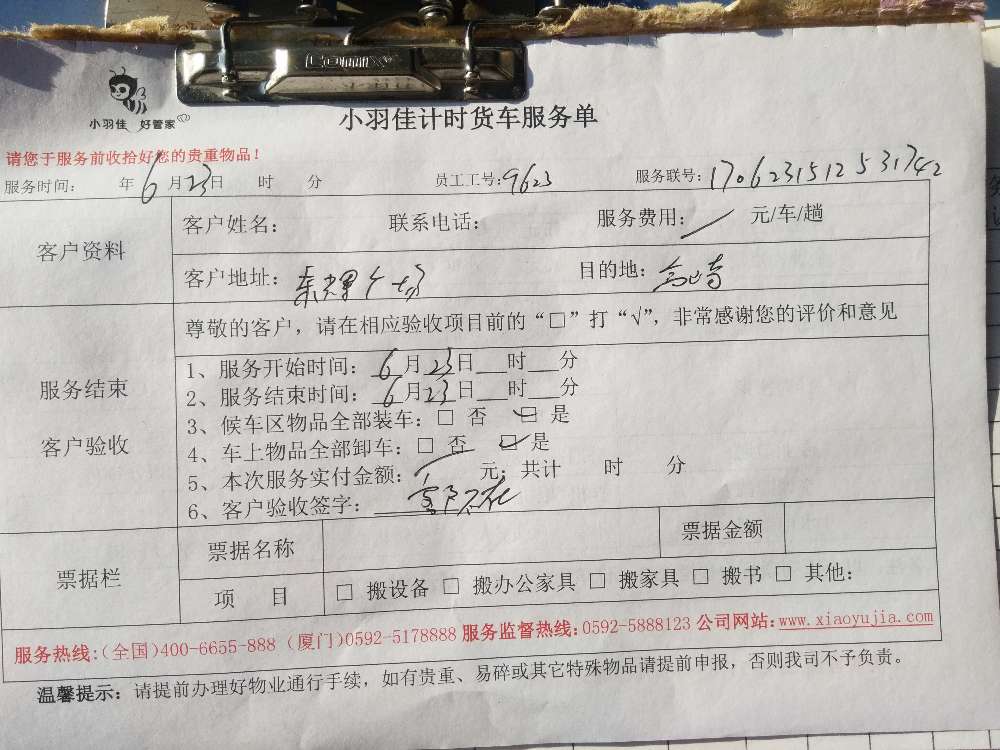 Comix
小羽佳 好管家
小羽佳计时货车服务单
请您于服务前收拾好您的贵重物品！
服务时间： 年6月23日 时 分 员工工号：9623 服务联号：1706231512531742
客户资料
客户姓名： 联系电话： 服务费用：／ 元/车/趟
客户地址： 目的地：高崎
服务结束
客户验收
尊敬的客户，请在相应验收项目前的“□”打“√”，非常感谢您的评价和意见
1、服务开始时间：6月23日___时___分
2、服务结束时间：6月23日___时___分
3、候车区物品全部装车：□ 否 ☑ 是
4、车上物品全部卸车：□ 否 ☑ 是
5、本次服务实付金额：／ 元；共计 时 分
6、客户验收签字：客户不在
票据栏
票据名称 票据金额
项 目 □ 搬设备 □ 搬办公家具 □ 搬家具 □ 搬书 □ 其他：
服务热线：（全国）400-6655-888（厦门）0592-5178888 服务监督热线：0592-5888123 公司网站：www.xiaoyujia.com
温馨提示：请提前办理好物业通行手续，如有贵重、易碎或其它特殊物品请提前申报，否则我司不予负责。